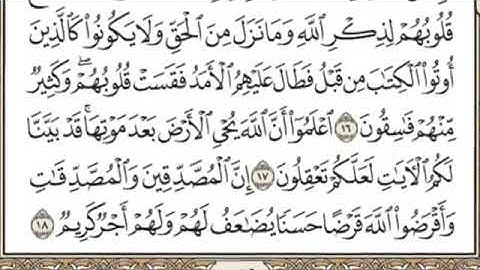 قُلُوبُهُمْ لِذِكْرِ ٱللَّهِ وَمَا نَزَلَ مِنَ ٱلْحَقِّ وَلَا يَكُونُوا۟ كَٱلَّذِينَ
أُوتُوا۟ ٱلْكِتَٰبَ مِن قَبْلُ فَطَالَ عَلَيْهِمُ ٱلْأَمَدُ فَقَسَتْ قُلُوبُهُمْ ۖ وَكَثِيرٌ
مِّنْهُمْ فَٰسِقُونَ ١٦ ٱعْلَمُوٓا۟ أَنَّ ٱللَّهَ يُحْىِ ٱلْأَرْضَ بَعْدَ مَوْتِهَا ۚ قَدْ بَيَّنَّا
لَكُمُ ٱلْءَايَٰتِ لَعَلَّكُمْ تَعْقِلُونَ ١٧ إِنَّ ٱلْمُصَّدِّقِينَ وَٱلْمُصَّدِّقَٰتِ
وَأَقْرَضُوا۟ ٱللَّهَ قَرْضًا حَسَنًا يُضَٰعَفُ لَهُمْ وَلَهُمْ أَجْرٌ كَرِيمٌ ١٨